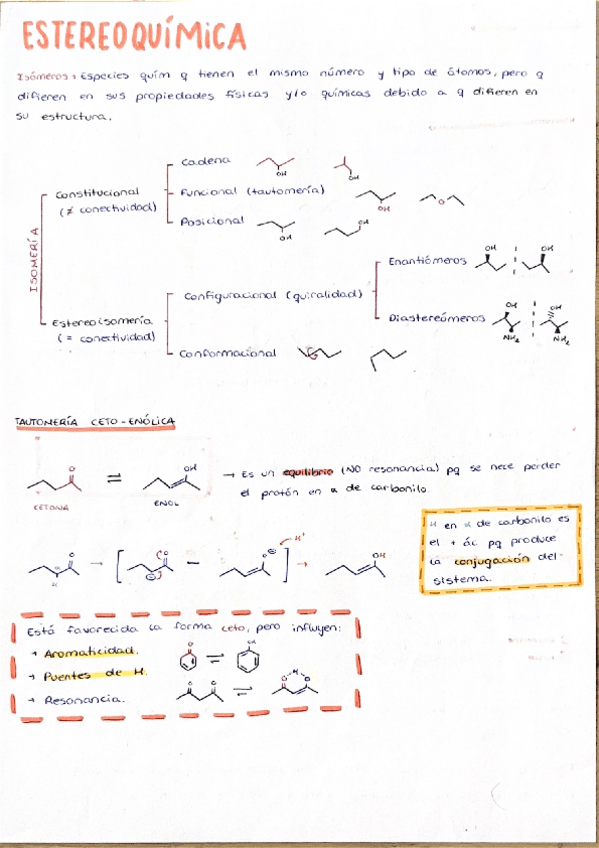 ESTEREOQUÍMICA
Isómeros: Especies quím q tienen el mismo número y tipo de átomos, pero q
difieren en sus propiedades físicas y/o químicas debido a q difieren en
su estructura.
ISOMERÍA
Constitucional
(≠ conectividad)
Cadena
OH
OH
Funcional (tautomería)
OH
O
Posicional
OH
OH
Estereoisomería
(= conectividad)
Configuracional (quiralidad)
Enantiómeros
OH
OH
Diastereómeros
OH
NH2
OH
NH2
Conformacional
TAUTOMERÍA CETO-ENÓLICA
O
CETONA
OH
ENOL
→ Es un equilibrio (NO resonancia) pq se nece perder
el protón en α de carbonilo.
H en α de carbonilo es
el + ác pq produce
la conjugación del
sistema.
O
H
O
O
H+
OH
Está favorecida la forma ceto, pero influyen:
→ Aromaticidad.
O
OH
→ Puentes de H.
→ Resonancia.
O
O
O
H
O